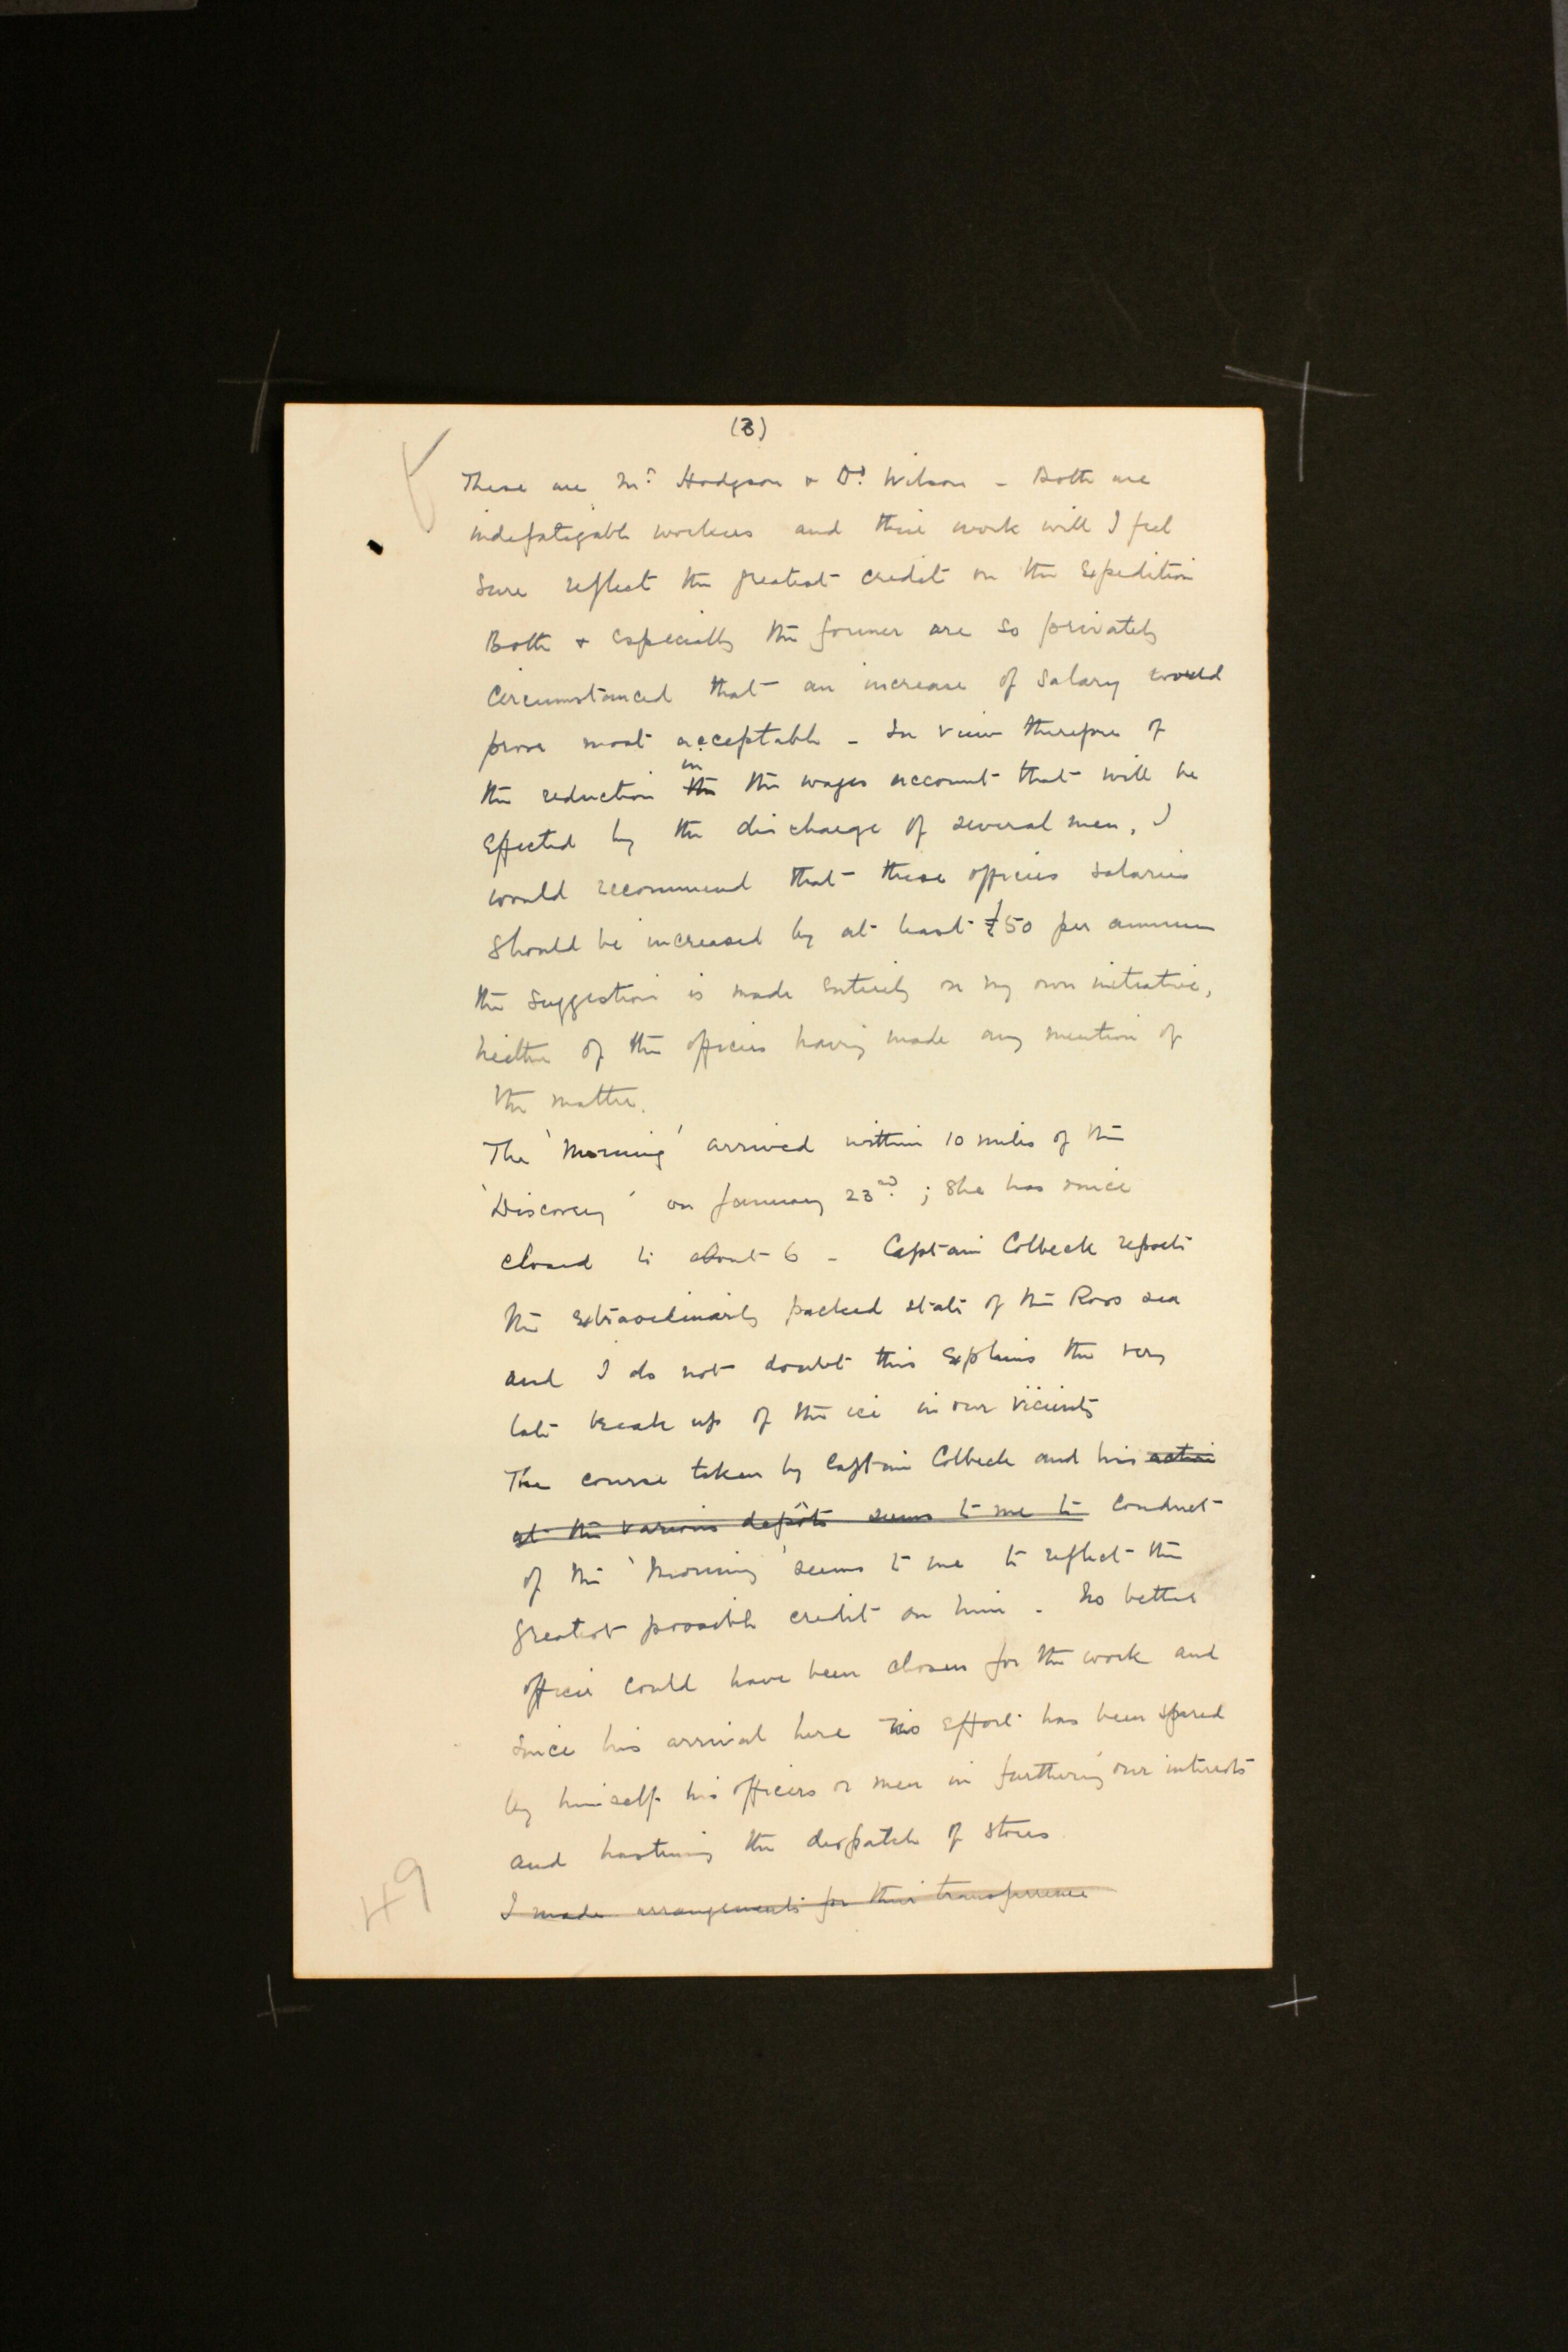 (3)
These are Mr. Hodgson & Dr. Wilson - Both are
indefatigable workers and their work will I feel
sure reflect the greatest credit on the Expedition
Both & especially the former are so privately
circumstanced that an increase of salary would
prove most acceptable - In view therefore of
in
the reduction the the wages account that will be
effected by the discharge of several men, I
would recommend that these officers salaries
should be increased by at least £50 per annum
the suggestion is made entirely on my own initiative,
neither of the officers having made any mention of
the matter.
The 'Morning' arrived within 10 miles of the
'Discovery' on January 23rd. ; She has since
closed to about 6 - Captain Colbeck reports
the extraordinarily packed state of the Ross sea
and I do not doubt this explains the very
late break up of the ice in our vicinity
The course taken by Captain Colbeck and his action
at the various depôts seems to me to conduct
of the 'Morning' seems to me to reflect the
greatest possible credit on him - No better
officer could have been chosen for the work and
since his arrival here no effort has been spared
by himself his officers or men in furthering our interests
and hastening the despatch of stores
I made arrangements for their transference
49